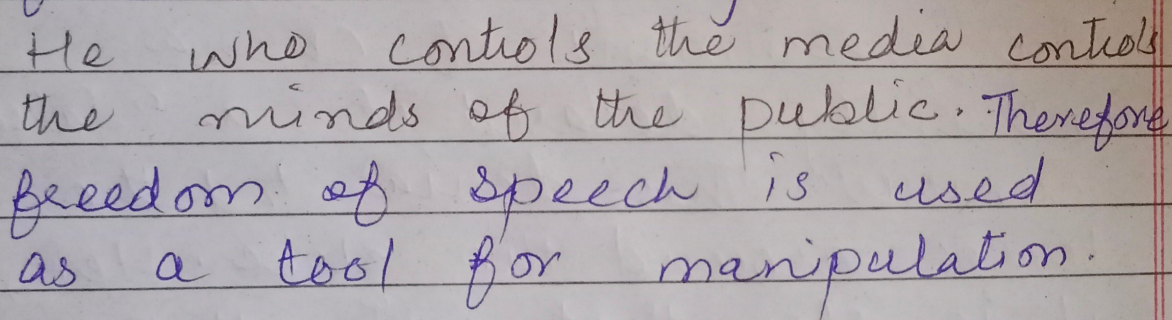 He who controls the media controls
the minds of the public. Therefore
freedom of speech is used
as a tool for manipulation.